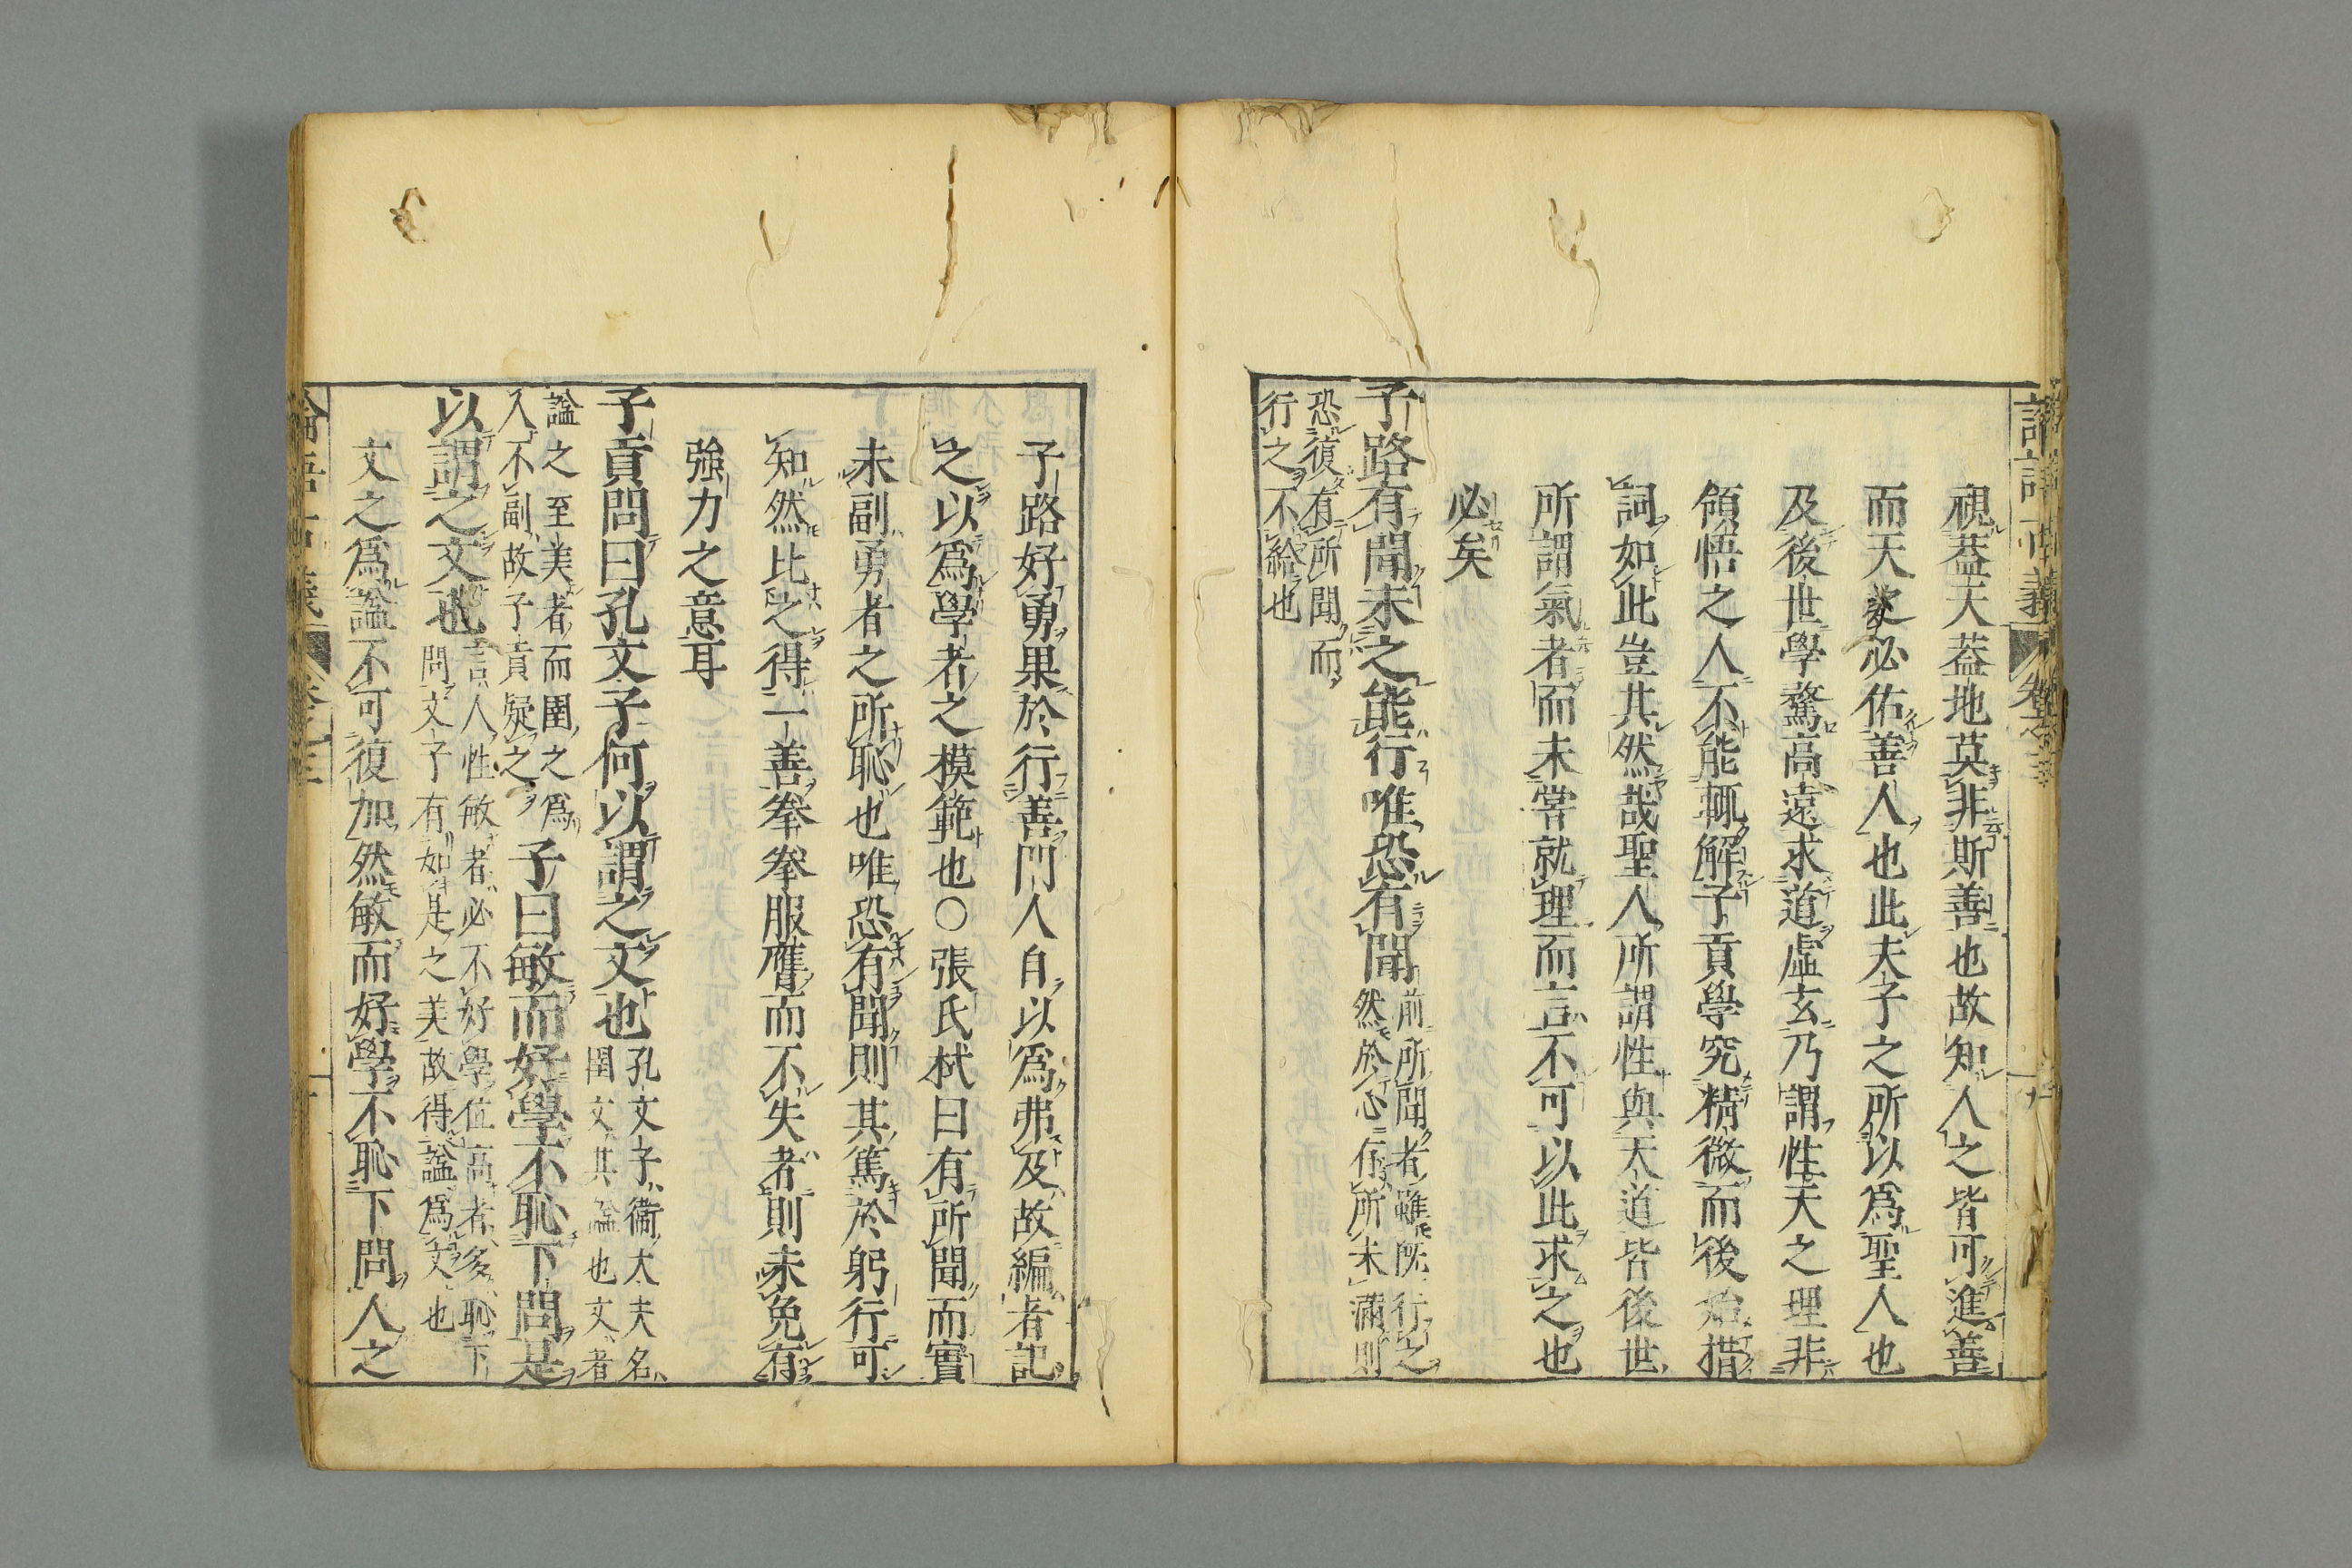 視蓋天蓋地莫非斯善也故知人之皆可進善
而天必佑善人也此夫子之所以爲聖人也
及後世學騖高遠求道虛玄乃謂性天之理非
領悟之人不能輒解子貢學究精微而後始措
詞如此豈其然哉聖人所謂性與天道皆後世
所謂氣者而未嘗就理而言不可以此求之也
必矣
子路有聞未之能行唯恐有聞
前所聞者雖既行之
然於心存所未滿則
恐復有所聞而
行之不給也
子路好勇果於行善門人自以爲弗及故編者記
之以爲學者之模範也〇張氏栻曰有所聞而實
未副勇者之所恥也唯恐有聞則其篤於躬行可
知然比之得一善拳拳服膺而不失者則未免有
強力之意耳
子貢問曰孔文子何以謂之文也
孔文子衞大夫名
圉文其諡也文者
諡之至美者而圉之爲
人不副故子貢疑之
子曰敏而好學不恥下問是
以謂之文也
言人性敏者必不好學位高者多恥下
問文子有如是之美故得諡爲文也
文之爲諡不可復加然敏而好學不恥下問人之